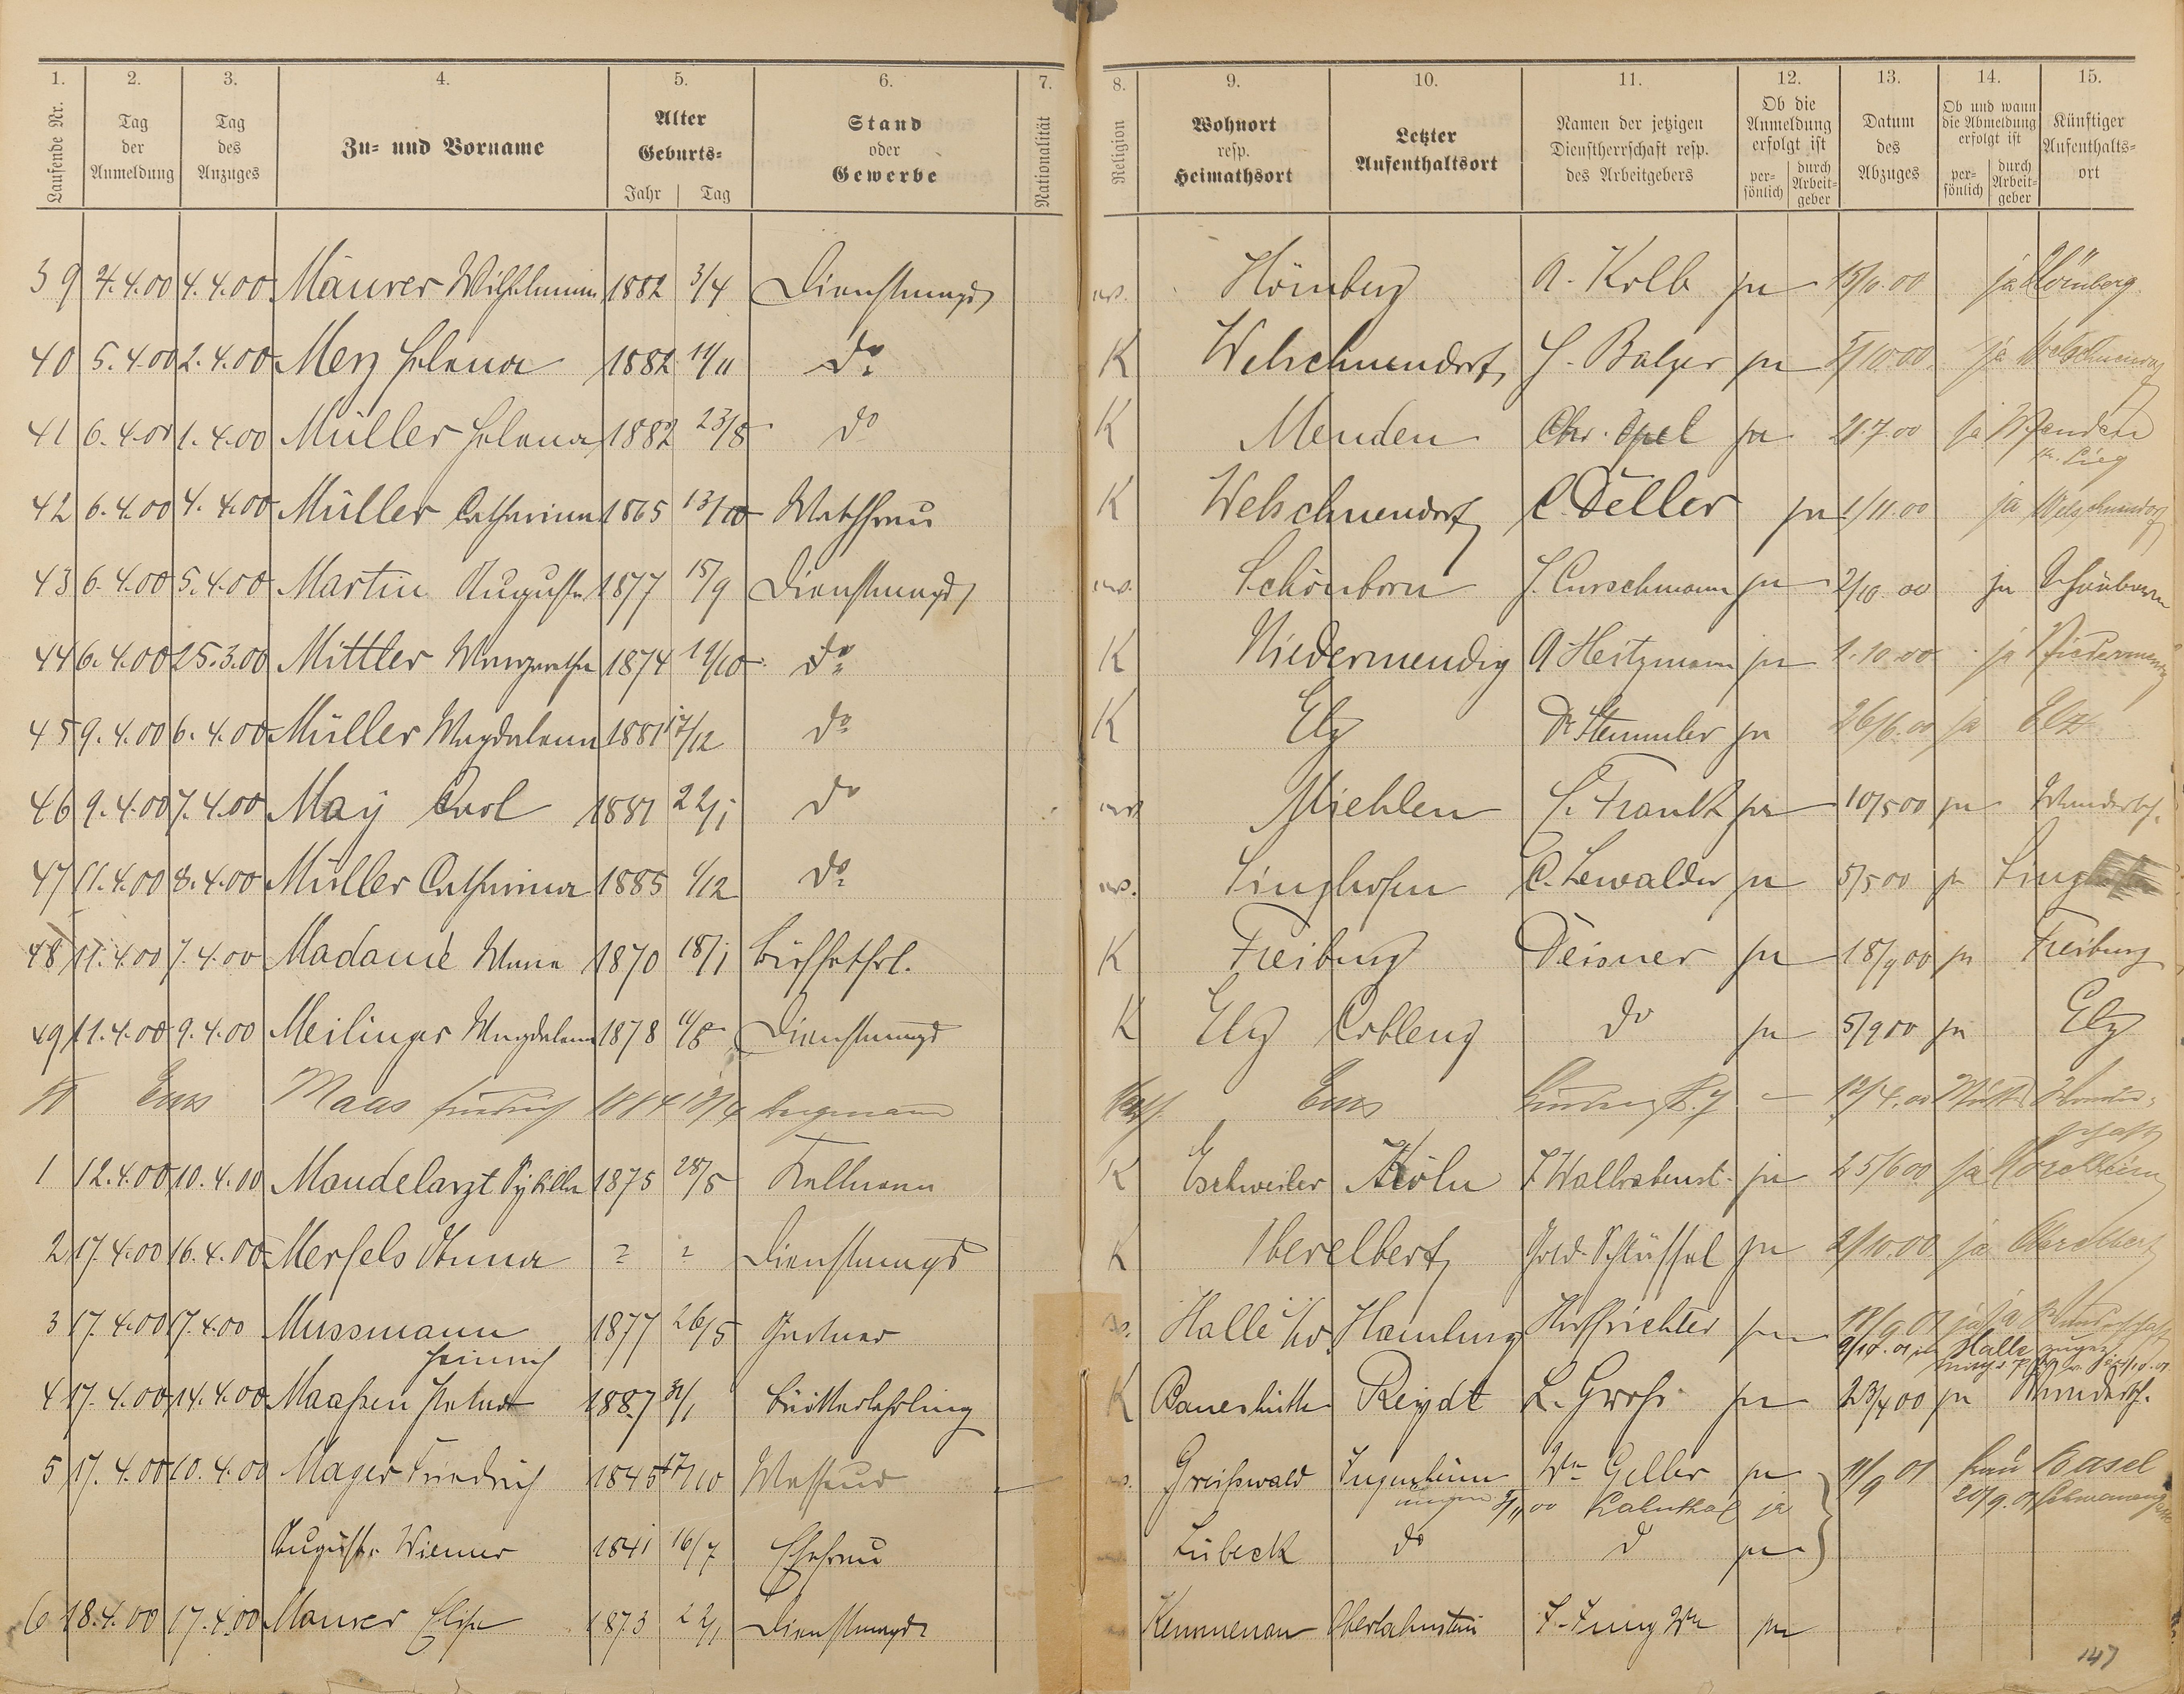 1. 2. 3. 4. 5. 6. 7. 8. 9. 10. 11. 12. 13. 14. 15.
Laufende Nr. Tag der Anmeldung Tag des Anzuges Zu- und Vorname Alter Geburts- Jahr Tag Stand oder Gewerbe Nationalität Religion Wohnort resp. Heimathsort Letzter Aufenthaltsort Namen der jetzigen Dienstherrschaft resp. des Arbeitgebers Ob die Anmeldung erfolgt ist persönlich durch Arbeitgeber Datum des Abzuges Ob und wann die Abmeldung erfolgt ist persönlich durch Arbeitgeber Künftiger Aufenthaltsort
39 4.4.00 4.4.00 Maurer Wilhelmine 1882 3/4 Dienstmagd ev. Hömberg A. Kolb ja 15/10.00 ja Hömberg
40 5.4.00 2.4.00 Merz Helena 1882 11/11 do K Welschneudorf H. Balzer ja 5/10 00 ja Welschneudorf
41 6.4.00 1.4.00 Müller Helena 1882 23/8 do K Menden Chr. Opel ja 21.7.00 ja Menden Kr. Sieg
42 6.4.00 4.4.00 Müller Catharina 1865 13/10 Waschfrau K Welschneudorf C. Deller ja 1/11.00 ja Welschneudorf
43 6.4.00 5.4.00 Martin Auguste 1877 15/9 Dienstmagd ev. Schönborn J. Curschmann ja 2/10.00 ja Schönborn
44 6.4.00 25.3.00 Mittler Margaretha 1874 19/10 do K Niedermendig A Heitzmann ja 1.10.00 ja Niedermendig
45 9.4.00 6.4.00 Müller Magdalena 1881 17/12 do K Elz Dr Stemmler ja 26/6.00 ja Elz
46 9.4.00 7.4.00 May Carl 1881 22/1 do ev. Miehlen C. Frank ja 10/5 00 ja Wanderschf.
47 11.4.00 8.4.00 Müller Catharina 1885 1/12 do ev. Singhofen C. Lewalder ja 5/5 00 ja Singhofen
48 11.4.00 7.4.00 Madamé Anna 1870 18/1 Büffetfrl. K Freiburg Deisner ja 18/9 00 ja Freiburg
49 11.4.00 9.4.00 Meilinger Magdalena 1878 11/8 Dienstmagd K Elz Coblenz do ja 5/9 00 ja Elz
50 Ems Maas Friedrich 1884 Bergmann Kath. Ems 12/4.00 Wanderschaft
1 12.4.00 10.4.00 Mandelarzt 1875 28/5 Kellnerin K Eschweiler Köln ja 25/6 00 ja
2 17.4.00 16.4.00 Merfels Anna Dienstmagd K Oberelbert Gold. Schlüssel ja 2/10.00 ja Oberelbert
3 17.4.00 17.4.00 Mussmann Heinrich 1877 26/5 Gärtner Halle Hamburg Hoffrichter ja 18/9 01 ja ja Wanderschaft
Halle
4 17.4.00 14.4.00 Maaßen 1887 31/1 K Rheydt L. Groß ja 23/4 00 ja Wanderschf.
5 17.4.00 10.4.00 Mager Friedrich 1845 17/10 Masseur Greifswald Jugenheim Wwe Geller ja 11/9 01 Basel
00 Kaltenthal ja
Auguste Wiemer 1841 16/7 Ehefrau Lübeck do d ja
6 18.4.00 17.4.00 Maurer Elise 1873 22/1 Dienstmagd Kemmenau Oberlahnstein F. Jung Wwe ja
147